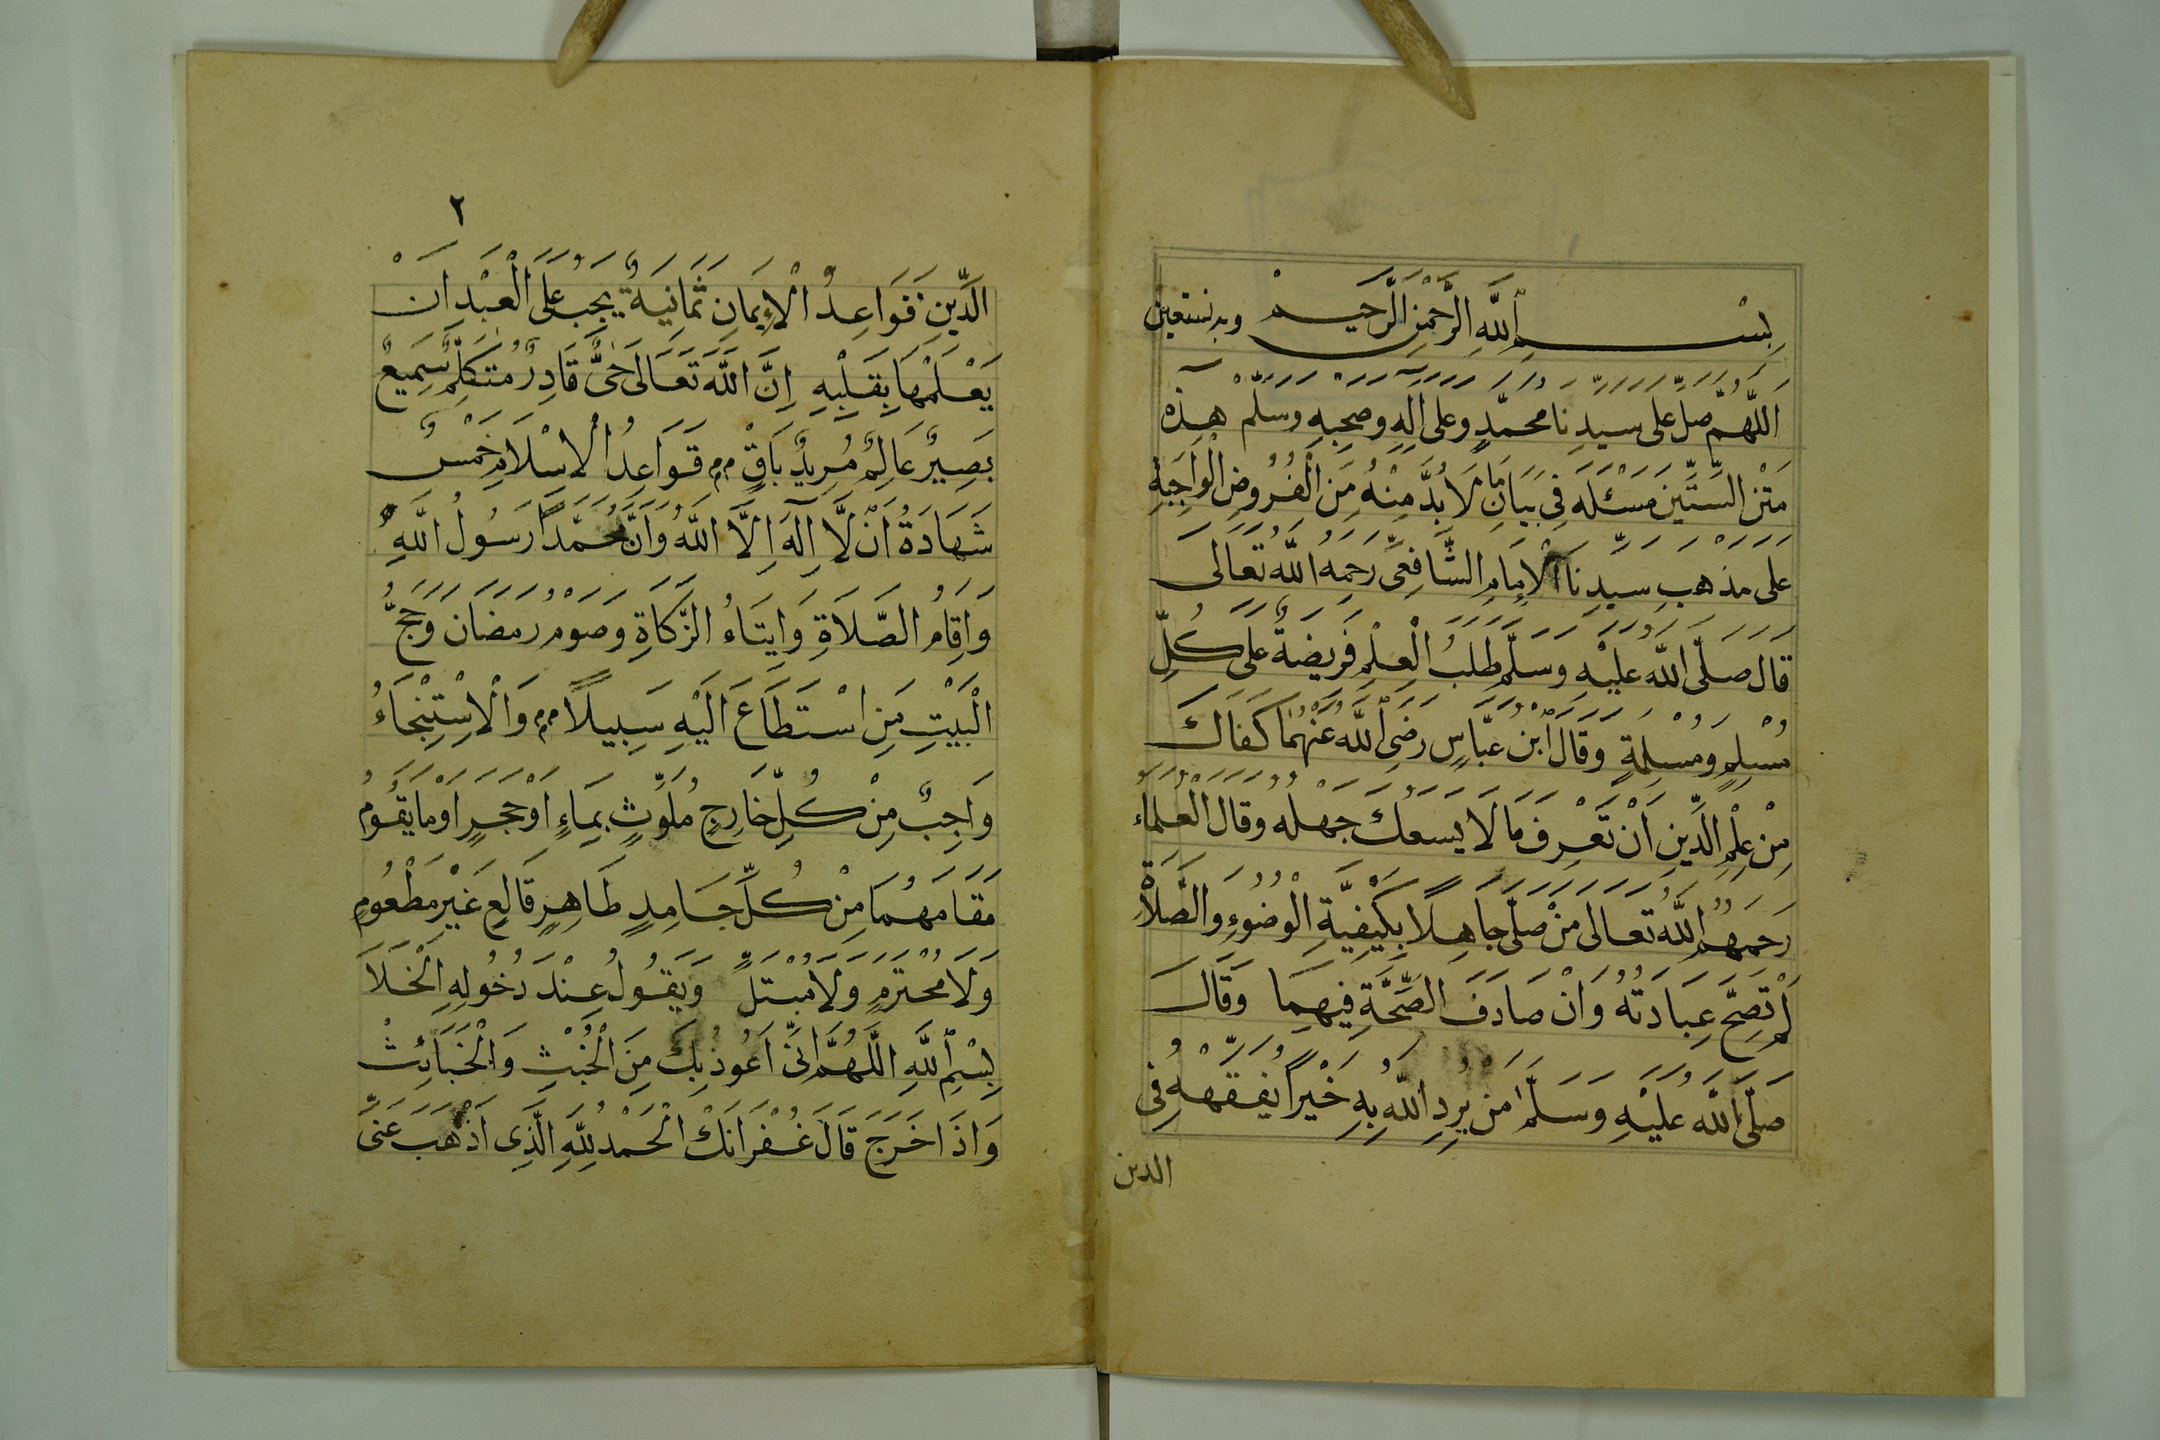 بِسْمِ اللَّهِ الرَّحْمٰنِ الرَّحِيمْ وبه نستعين
اَللّٰهُمَّ صَلِّ عَلٰى سَيِّدِنَا مُحَمَّدٍ وَعَلٰى اٰلِهِ وَصَحْبِهِ وَسَلَّمْ هٰذِهِ
مَتْنُ السِّتِّينَ مَسْئَلَه فِي بَيَانِ مَا لَا بُدَّ مِنْهُ مِنَ الْفُرُوضِ الْوَاجِبَةِ
عَلَى مَذْهَبِ سَيِّدِنَا الْاِمَامِ الشَّافِعِىِّ رَحِمَهُ اللّٰهُ تَعَالَى
قَالَ صَلَّى اللّٰهُ عَلَيْهِ وَسَلَّمَ طَلَبُ الْعِلْمِ فَرِيضَةٌ عَلَى كُلِّ
مُسْلِمٍ وَمُسْلِمَةٍ وَقَالَ ابْنُ عَبَّاسٍ رَضِىَ اللّٰهُ عَنْهُمَا كَفَاكَ
مِنْ عِلْمِ الدِّينِ اَنْ تَعْرِفَ مَا لَا يَسَعُكَ جَهْلُهُ وَقَالَ الْعُلَمَاءُ
رَحِمَهُمُ اللّٰهُ تَعَالَى مَنْ صَلَّى جَاهِلًا بِكَيْفِيَّةِ الْوُضُوءِ وَالصَّلَاةِ
لَمْ تَصِحَّ عِبَادَتُهُ وَاِنْ صَادَفَ الصِّحَّةَ فِيهِمَا وَقَالَ
صَلَّى اللّٰهُ عَلَيْهِ وَسَلَّمَ مَنْ يُرِدِ اللّٰهُ بِهِ خَيْرًا يُفَقِّهْهُ فِى
الدين
٢
الدِّينِ فَقَوَاعِدُ الْاِيمَانِ ثَمَانِيَةٌ يَجِبُ عَلَى الْعَبْدِ اَنْ
يَعْلَمَهَا بِقَلْبِهِ اِنَّ اللّٰهَ تَعَالَى حَىٌّ قَادِرٌ مُتَكَلِّمٌ سَمِيعٌ
بَصِيرٌ عَالِمٌ مُرِيدٌ بَاقٍ قَوَاعِدُ الْاِسْلَامِ خَمْسٌ
شَهَادَةُ اَنْ لَا اِلٰهَ اِلَّا اللّٰهُ وَاَنَّ مُحَمَّدًا رَسُولُ اللّٰهِ
وَاِقَامُ الصَّلَاةِ وَاِيتَاءُ الزَّكَاةِ وَصَوْمُ رَمَضَانَ وَحَجُّ
الْبَيْتِ مَنِ اسْتَطَاعَ اِلَيْهِ سَبِيلًا وَالْاِسْتِنْجَاءُ
وَاجِبٌ مِنْ كُلِّ خَارِجٍ مُلَوِّثٍ بِمَاءٍ اَوْ حَجَرٍ اَوْ مَا يَقُومُ
مَقَامَهُمَا مِنْ كُلِّ جَامِدٍ طَاهِرٍ قَالِعٍ غَيْرِ مَطْعُومٍ
وَلَا مُحْتَرَمٍ وَلَا مُبْتَلٍّ وَيَقُولُ عِنْدَ دُخُولِهِ الْخَلَا
بِسْمِ اللّٰهِ اَللّٰهُمَّ اِنِّى اَعُوذُ بِكَ مِنَ الْخُبْثِ وَالْخَبَائِثْ
وَاِذَا خَرَجَ قَالَ غُفْرَانَكْ اَلْحَمْدُ لِلّٰهِ الَّذِى اَذْهَبَ عَنِّى